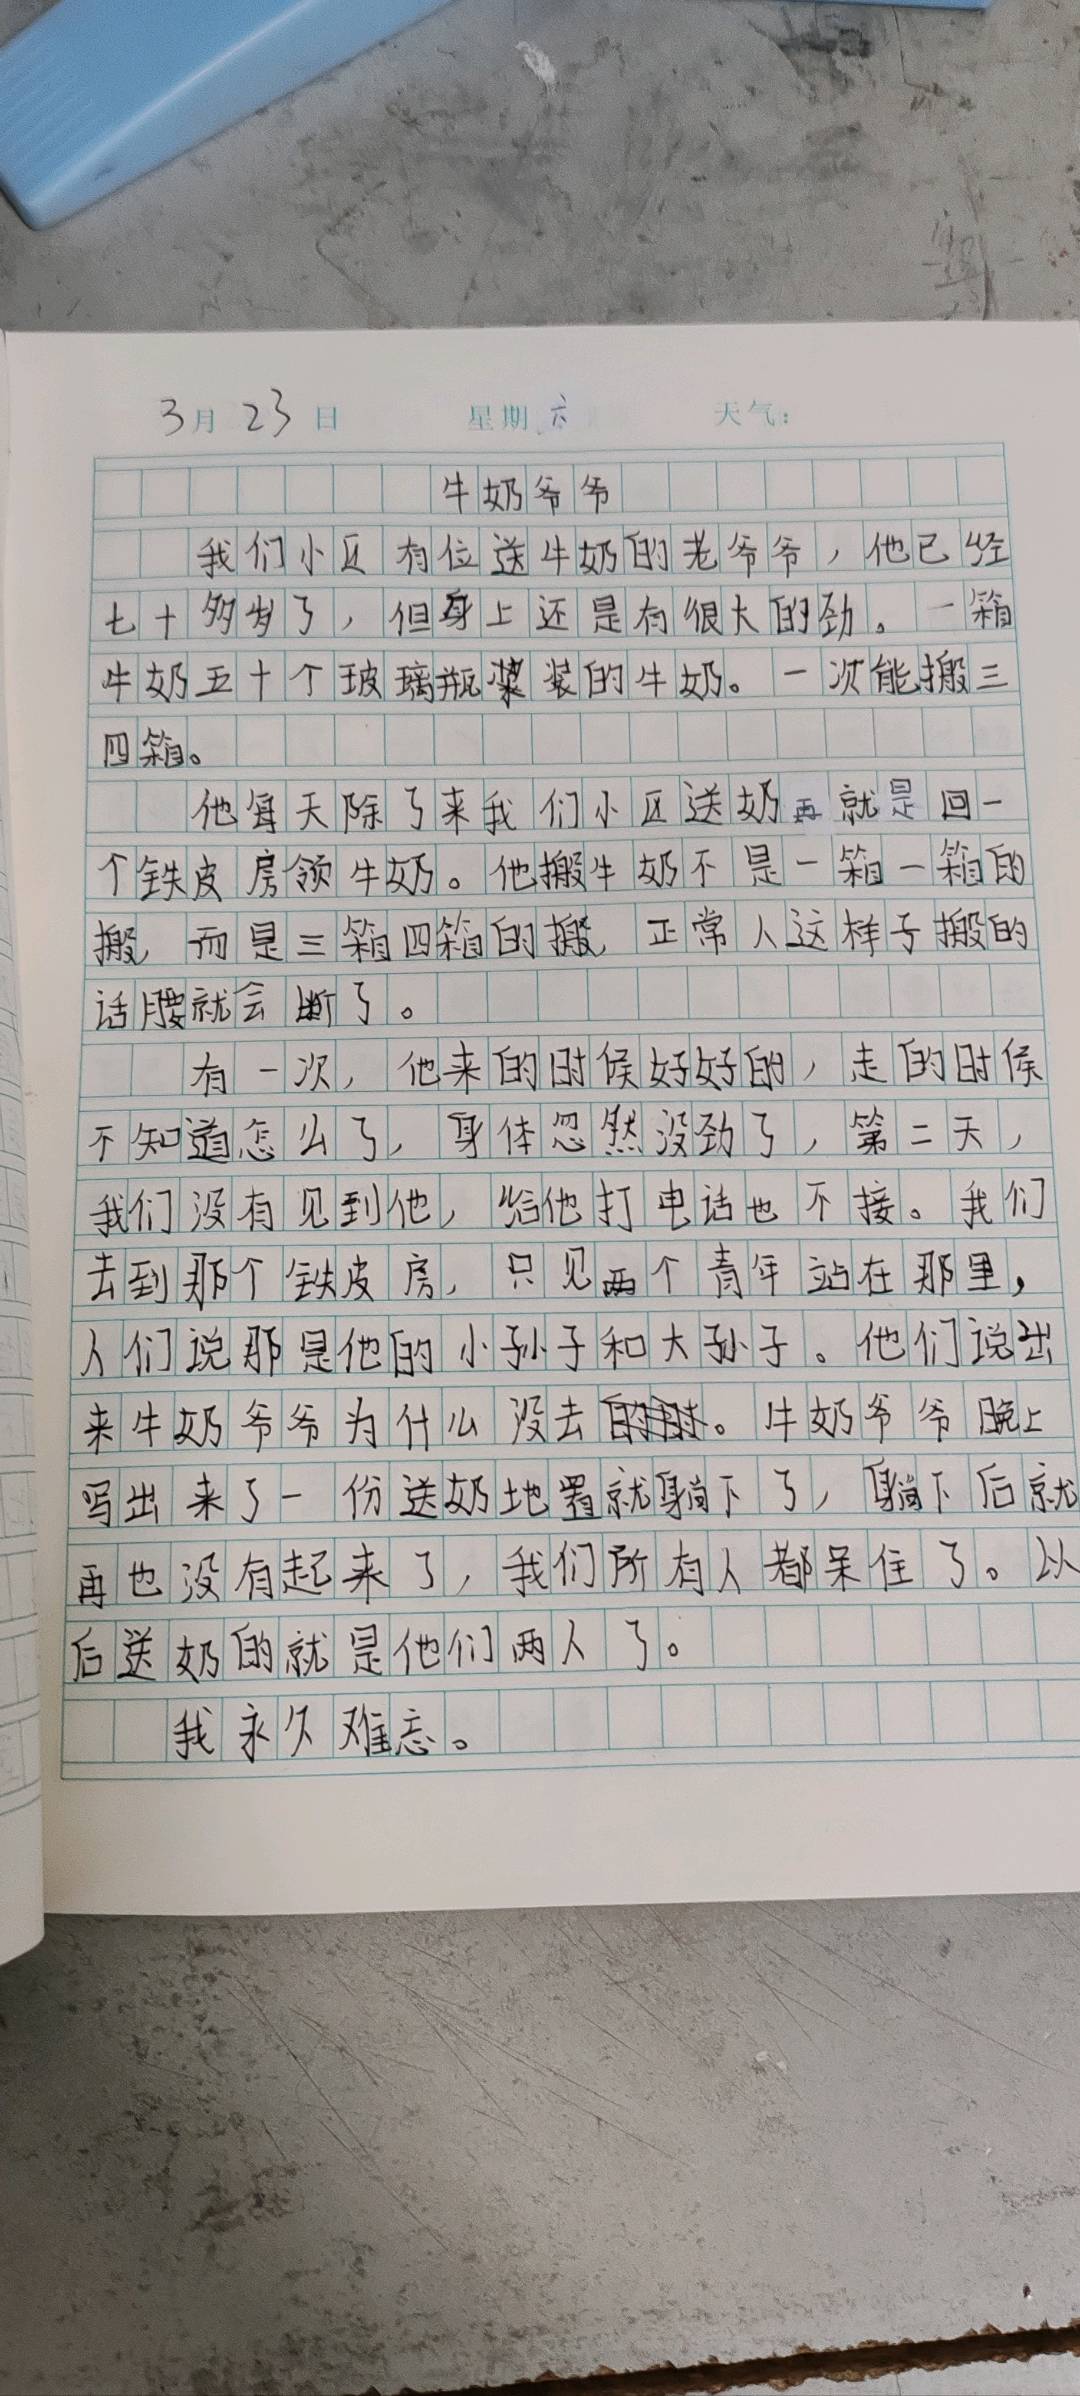 3月23日 星期六 天气:
牛奶爷爷
我们小区有位送牛奶的老爷爷，他已经
七十多岁了，但身上还是有很大的劲。一箱
牛奶五十个玻璃瓶装的牛奶。一次能搬三
四箱。
他每天除了来我们小区送奶再就是回一
个铁皮房领牛奶。他搬牛奶不是一箱一箱的
搬，而是三箱四箱的搬，正常人这样子搬的
话腰就会断了。
有一次，他来的时候好好的，走的时候
不知道怎么了，身体忽然没劲了，第二天，
我们没有见到他，给他打电话也不接。我们
去到那个铁皮房，只见两个青年站在那里，
人们说那是他的小孙子和大孙子。他们说出
来牛奶爷爷为什么没去。牛奶爷爷晚上
写出来了一份送奶地置就躺下了，躺下后就
再也没有起来了，我们所有人都呆住了。以
后送奶的就是他们两人了。
我永久难忘。